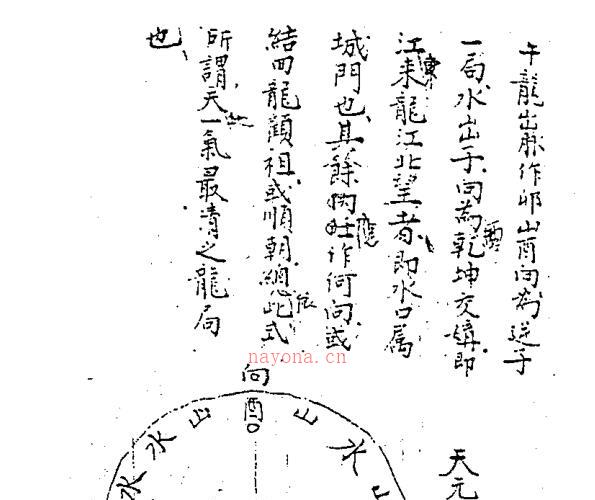 午龍出脉作卯山酉向為逆子
一局水出子向酉為乾坤交媾即
江東來龍江北望者即水口属
城門也其餘作何向或
結回龍顧祖或順朝總依此式
所謂天一氣最清之龍局
也
nayona.cn
向
酉
水 水 山 山 水 山
天元